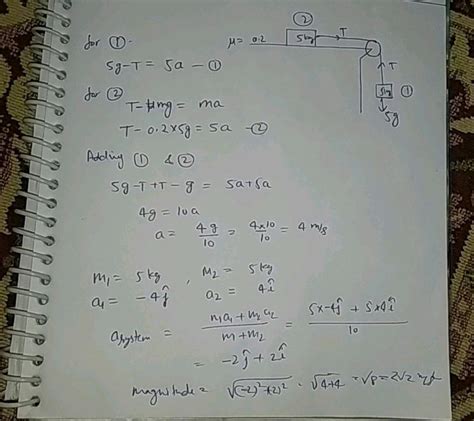 ②
for ① -
μ = 0.2
5kg
T
5g - T = 5a - ①
T
for ②
5kg ①
5g
T - μmg = ma
T - 0.2×5g = 5a - ②
Adding ① & ②
5g - T + T - g = 5a + 5a
4g = 10a
a = 4g/10 = 4×10/10 = 4 m/s
m₁ = 5kg , M₂ = 5kg
a₁ = -4ĵ a₂ = 4î
a system = m₁a₁ + m₂a₂ / m + m₂ = 5×-4ĵ + 5×4î / 10
= -2ĵ + 2î
magnitude = √(-2)²+(2)² = √4+4 = √8 = 2√2